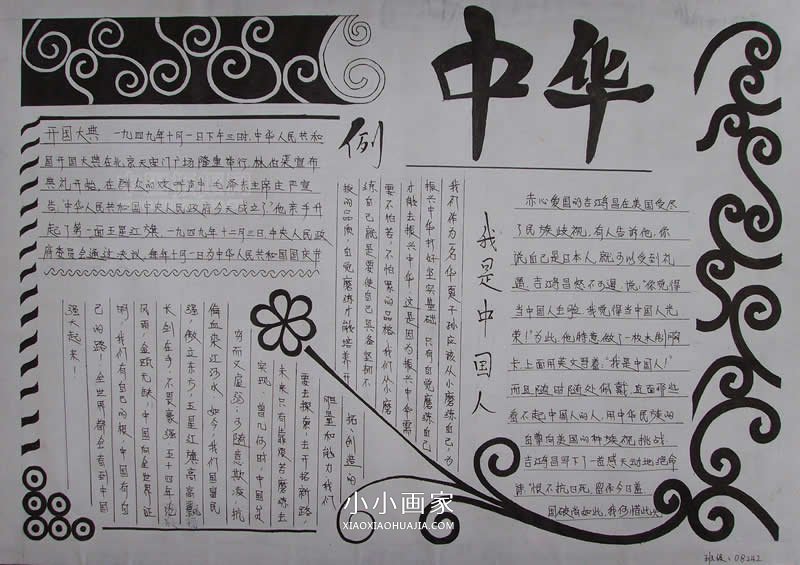 中华
例
开国大典 一九四九年十月一日下午三时，中华人民共和
国开国大典在北京天安门广场隆重举行，林伯渠宣布
典礼开始，在群众的欢呼声中，毛泽东主席庄严宣
告："中华人民共和国中央人民政府今天成立了"他亲手升
起了第一面五星红旗。一九四九年十二月三日，中央人民政
府委员会通过决议，每年十月一日为中华人民共和国国庆节
我们作为一名华夏子孙应该从小磨练自己，为
振兴中华打好坚实基础，只有自觉磨练自己
才能去振兴中华，这是因为振兴中华需
要不怕苦，不怕累的品格，我们从小磨
练自己就是要使自己具备坚韧不
拔的品质，自觉磨练才能培养开
拓、创造的
胆量和能力，我们
要去探索，去开拓新路，
未来只有靠艰苦磨练去
实现，曾几何时，中国是
穷而又虚弱，可随意欺凌，抗
倔血染江河水，如今，我们国富民
强，傲立东方，五星红旗高高飘
长剑在手，不畏豪强，五十四年沧
风雨，金瓯无缺，中国向全世界证
明，我们有自己的根，中国有自
己的路！全世界都会看到中国
强大起来！
我是中国人
赤心爱国的吉鸿昌在美国受尽
了民族歧视，有人告诉他，你
说自己是日本人，就可以受到礼
遇。吉鸿昌怒不可遏，说，"你觉得
当中国人丢脸，我觉得当中国人光
荣！"为此，他特意做了一枚木制胸
卡，上面用英文写着："我是中国人！"
而且随时随处佩戴，直面那些
看不起中国人的人，用中华民族的
自尊向美国的种族歧视挑战
吉鸿昌写下了一首感天动地绝命
诗"恨不抗日死，留作今日羞
国破尚如此，我何惜此头
班级：08242
小小画家
XIAOXIAOHUAJIA.COM